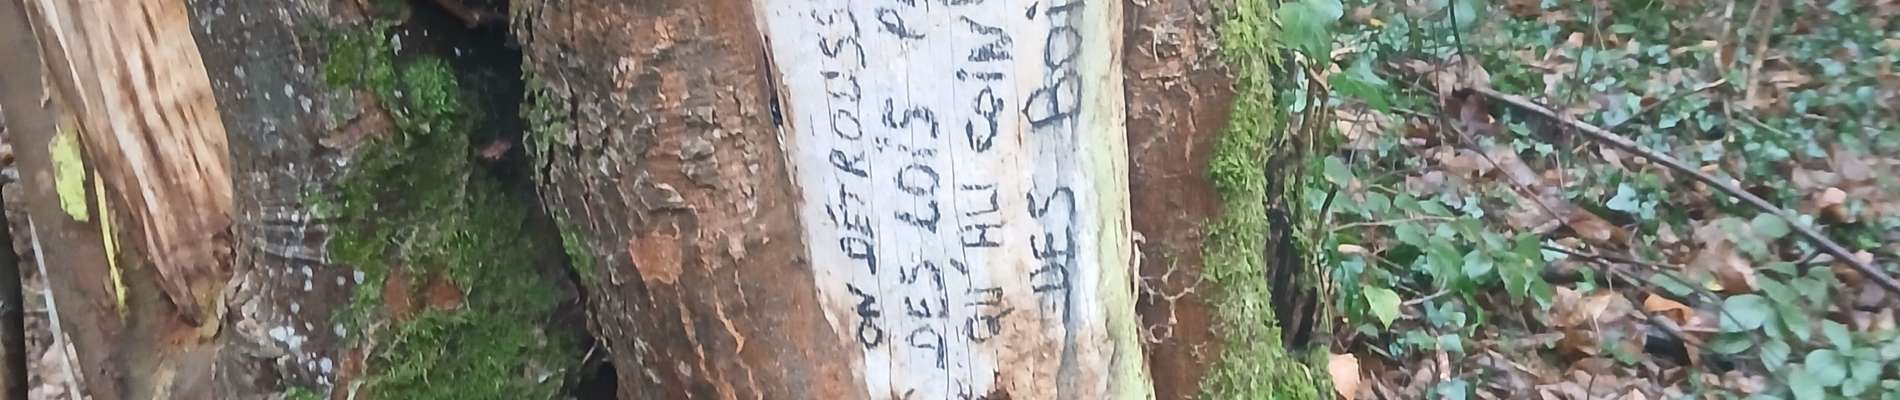 ON DÉTROUSS
DES LOIS P
QU'AU COIN
DES BOI